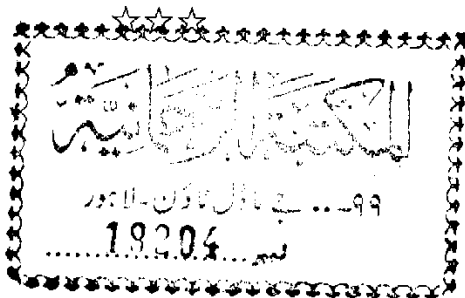 المكتبة الرحمانية
۹۹... جے ماڈل ٹاؤن۔ لاہور
نمبر...18204...